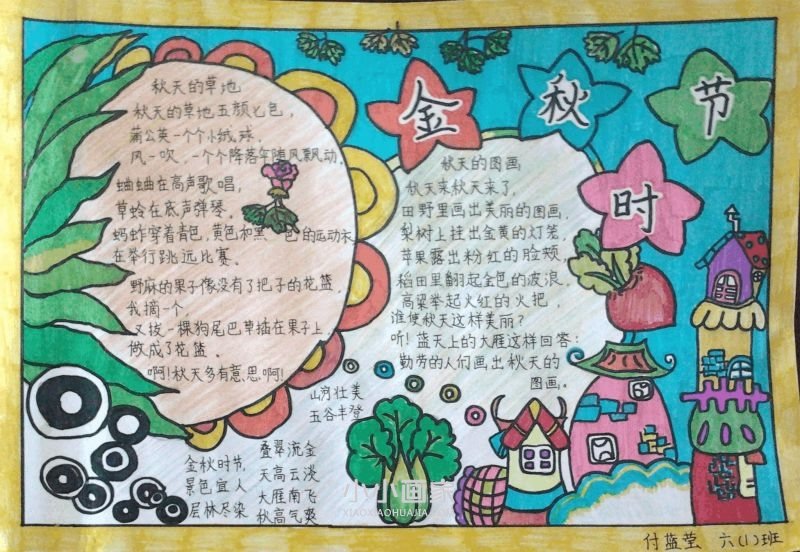 金秋时节
秋天的草地
秋天的草地五颜七色,
蒲公英一个个小绒球,
风一吹,一个个降落伞随风飘动。
蛐蛐在高声歌唱,
草蛉在底声弹琴。
蚂蚱穿着青色,黄色和黑色的运动衣
在举行跳远比赛。
野麻的果子像没有了把子的花篮,
我摘一个,
又拔一棵狗尾巴草插在果子上,
做成了花篮。
啊!秋天多有意思啊!
秋天的图画
秋天来秋天来了,
田野里画出美丽的图画,
梨树上挂出金黄的灯笼,
苹果露出粉红的脸颊,
稻田里翻起金色的波浪,
高粱举起火红的火把,
谁使秋天这样美丽?
听!蓝天上的大雁这样回答:
勤劳的人们画出秋天的
图画。
山河壮美
五谷丰登
金秋时节
景色宜人
层林尽染
叠翠流金
天高云淡
大雁南飞
秋高气爽
小小画家
XIAOXIAOHUAJIA.COM
付蓝莹 六(1)班